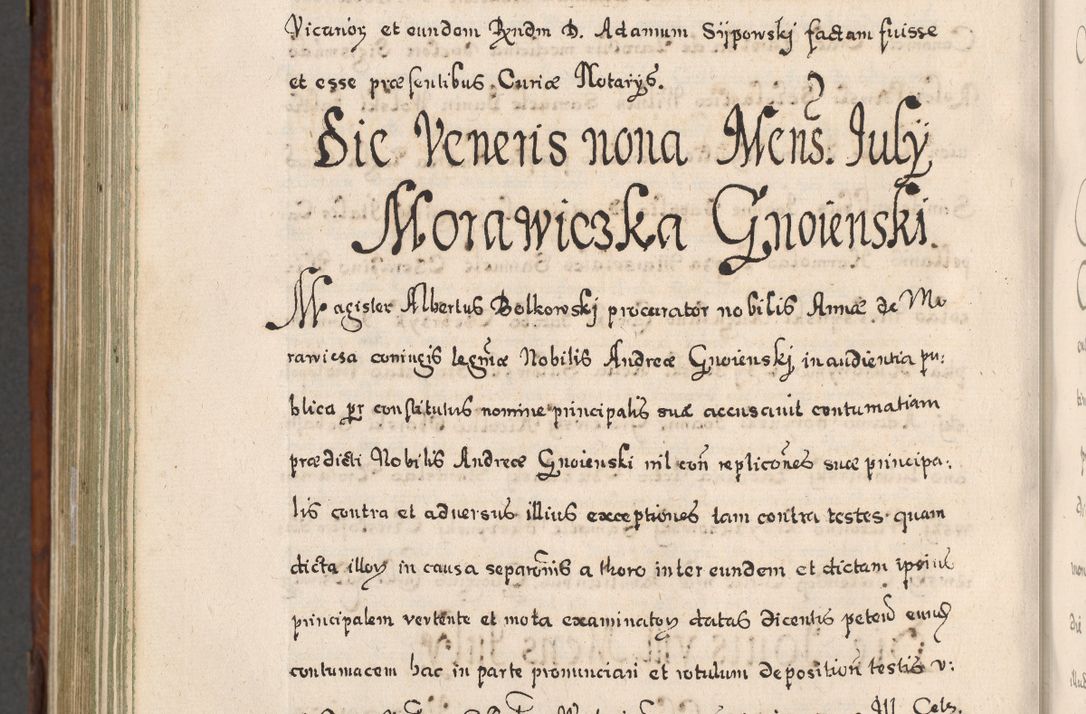 Vicarioꝝ et eundem Rndm D. Adamum Sijpowskj factam fuisse
et esse præsentibus Curiæ Notarys.
Die Veneris nona Mens. Iulÿ
Morawiczka Gnoienski.
Magister Albertus Bolkowskj procurator nobilis Annæ de Mo
rawicza coniugis legmæ Nobilis Andreæ Gnoienskj, in audientia pu:
blica pr constitutus nomine principalis suæ accusavit contumatiam
prædicti Nobilis Andreæ Gnoienski nil con replicones suæ principa:
lis contra et adversus illius exceptiones tam contra testes quam
dicta illoꝝ in causa separonis a thoro inter eundem et dictam ipsius
principalem vertente et mota examinatoꝝ datas dicentis peten eund
contumacem hac in parte pronunciari et rotulum deposition testis v:
Ill. Cels.